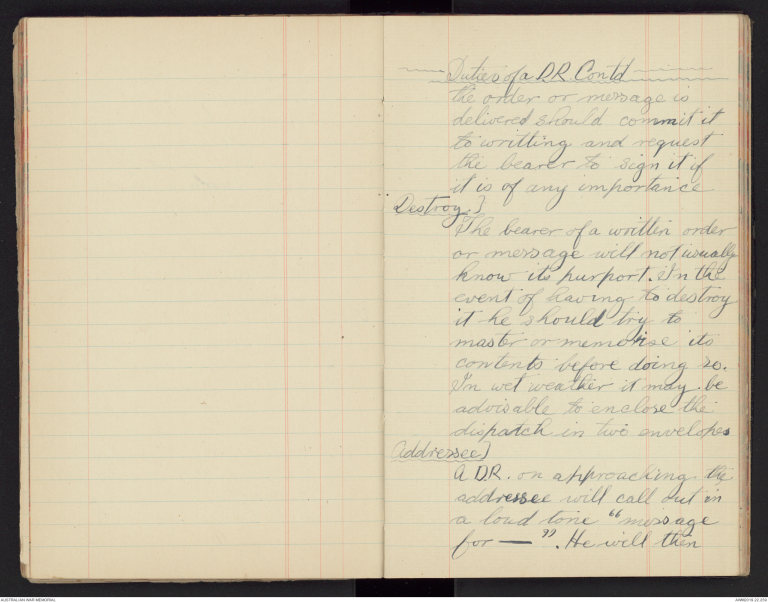 Duties of a D.R. Cont'd
the order or message is
delivered should commit it
to writting and request
the bearer to sign it if
it is of any importance
Destroy.]
The bearer of a written order
or message will not usually
know its purport. In the
event of having to destroy
it he should try to
master or memorise its
contents before doing so.
In wet weather it may be
advisable to enclose the
dispatch in two envelopes
Addressee]
A D.R. on approaching the
addressee will call out in
a loud tone "message
for — ". He will then
AUSTRALIAN WAR MEMORIAL